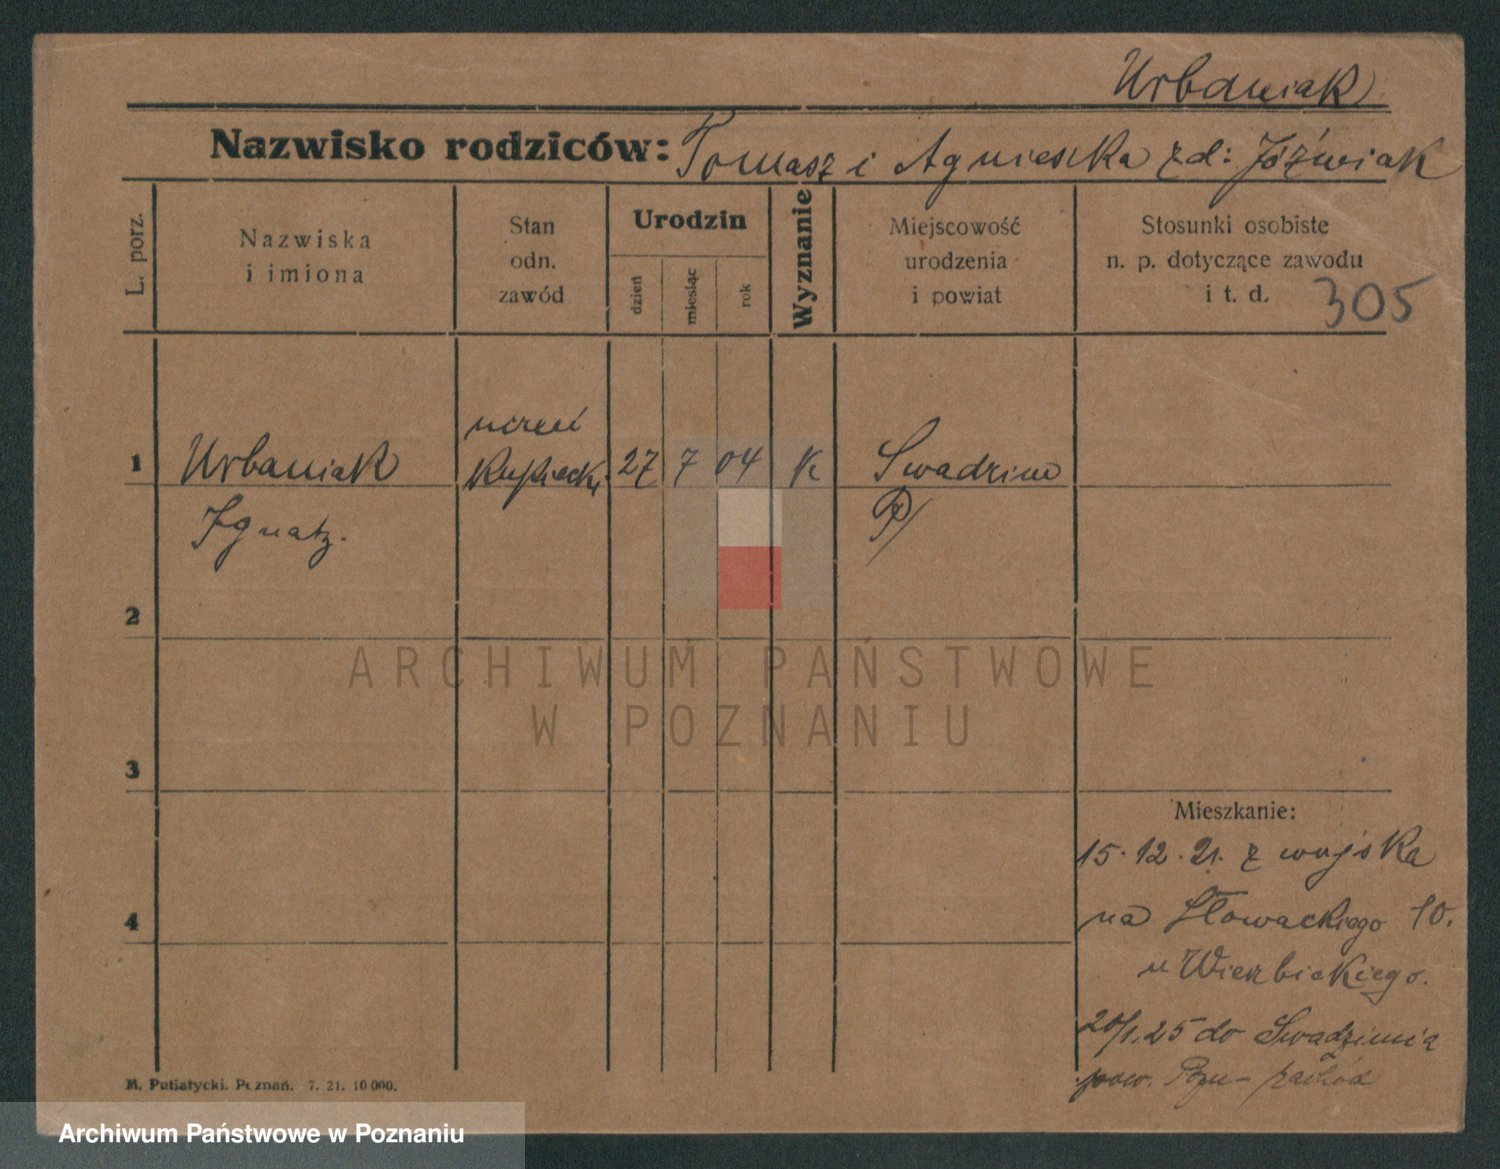 Urbaniak
Nazwisko rodziców: Tomasz i Agnieszka zd: Jóźwiak
L. porz.
Nazwiska
i imiona
Stan
odn.
zawód
Urodzin
dzień
miesiąc
rok
Wyznanie
Miejscowość
urodzenia
i powiat
Stosunki osobiste
n. p. dotyczące zawodu
i t. d.
305
1
Urbaniak
Ignatz.
uczeń
kupiecki
27 7 04 K
Swadzim
P/
2
3
4
ARCHIWUM PAŃSTWOWE
W POZNANIU
Mieszkanie:
15.12.21. z wojska
na Słowackiego 10.
u Wierzbickiego.
20/1.25 do Swadzimia
pow. Pozn- zachód
M. Putiatycki. Poznań. 7. 21. 10 000.
Archiwum Państwowe w Poznaniu